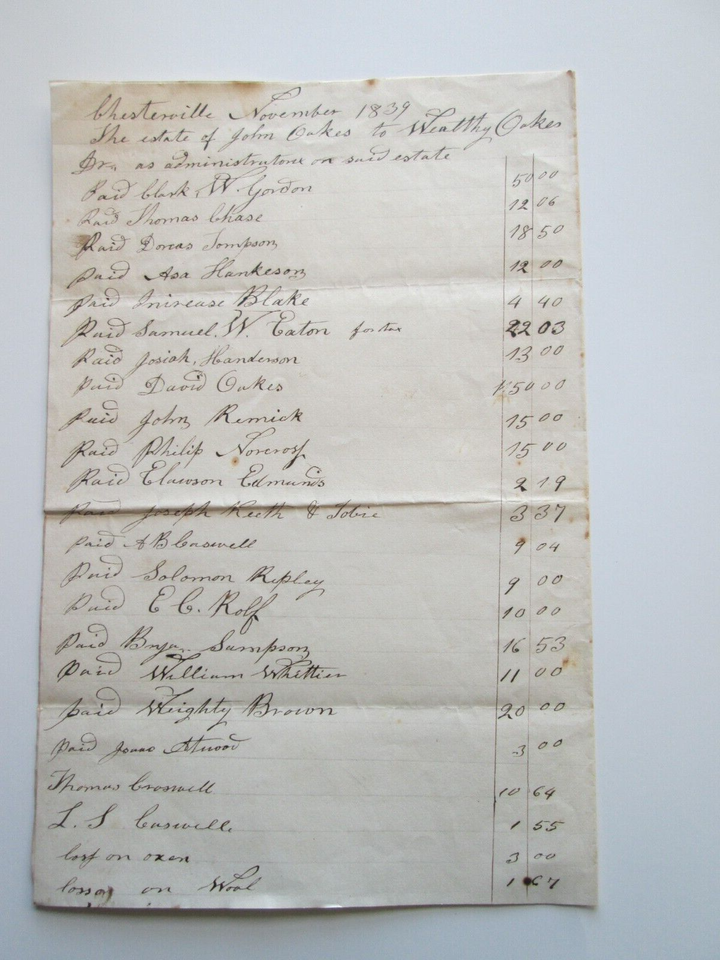 Chesterville November 1839
The estate of John Oakes to Wealthy Oakes
Dr. as administratorix on said estate
Paid Clark W. Gordon 50 00
Paid Thomas Chase 12 06
Paid Dorcas Tompson 18 50
Paid Asa Hankeson 12 00
Paid Increase Blake 4 40
Paid Samuel W. Eaton for tax 22 03
Paid Josiah Handerson 13 00
Paid David Oakes 150 00
Paid John Remick 15 00
Paid Philip Norcross 15 00
Paid Elawson Edmunds 2 19
Paid Joseph Keith & Tobie 3 37
Paid A B Caswell 9 04
Paid Solomon Ripley 9 00
Paid E C. Rolf 10 00
Paid Sampson 16 53
Paid William Whittier 11 00
Paid Weighty Brown 20 00
Paid Isaac Atwood 3 00
Thomas Croswell 10 64
L. S Caswell 1 55
loss on oxen 3 00
loss on Wool 1 67